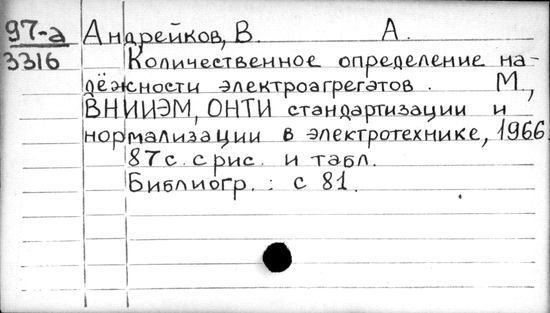 97-а
3316
Андрейков, В. А.
Количественное определение на-
дёжности электроагрегатов. М.,
ВНИИЭМ, ОНТИ стандартизации и
нормализации в электротехнике, 1966.
87с. с рис. и табл.
Библиогр.: с 81.